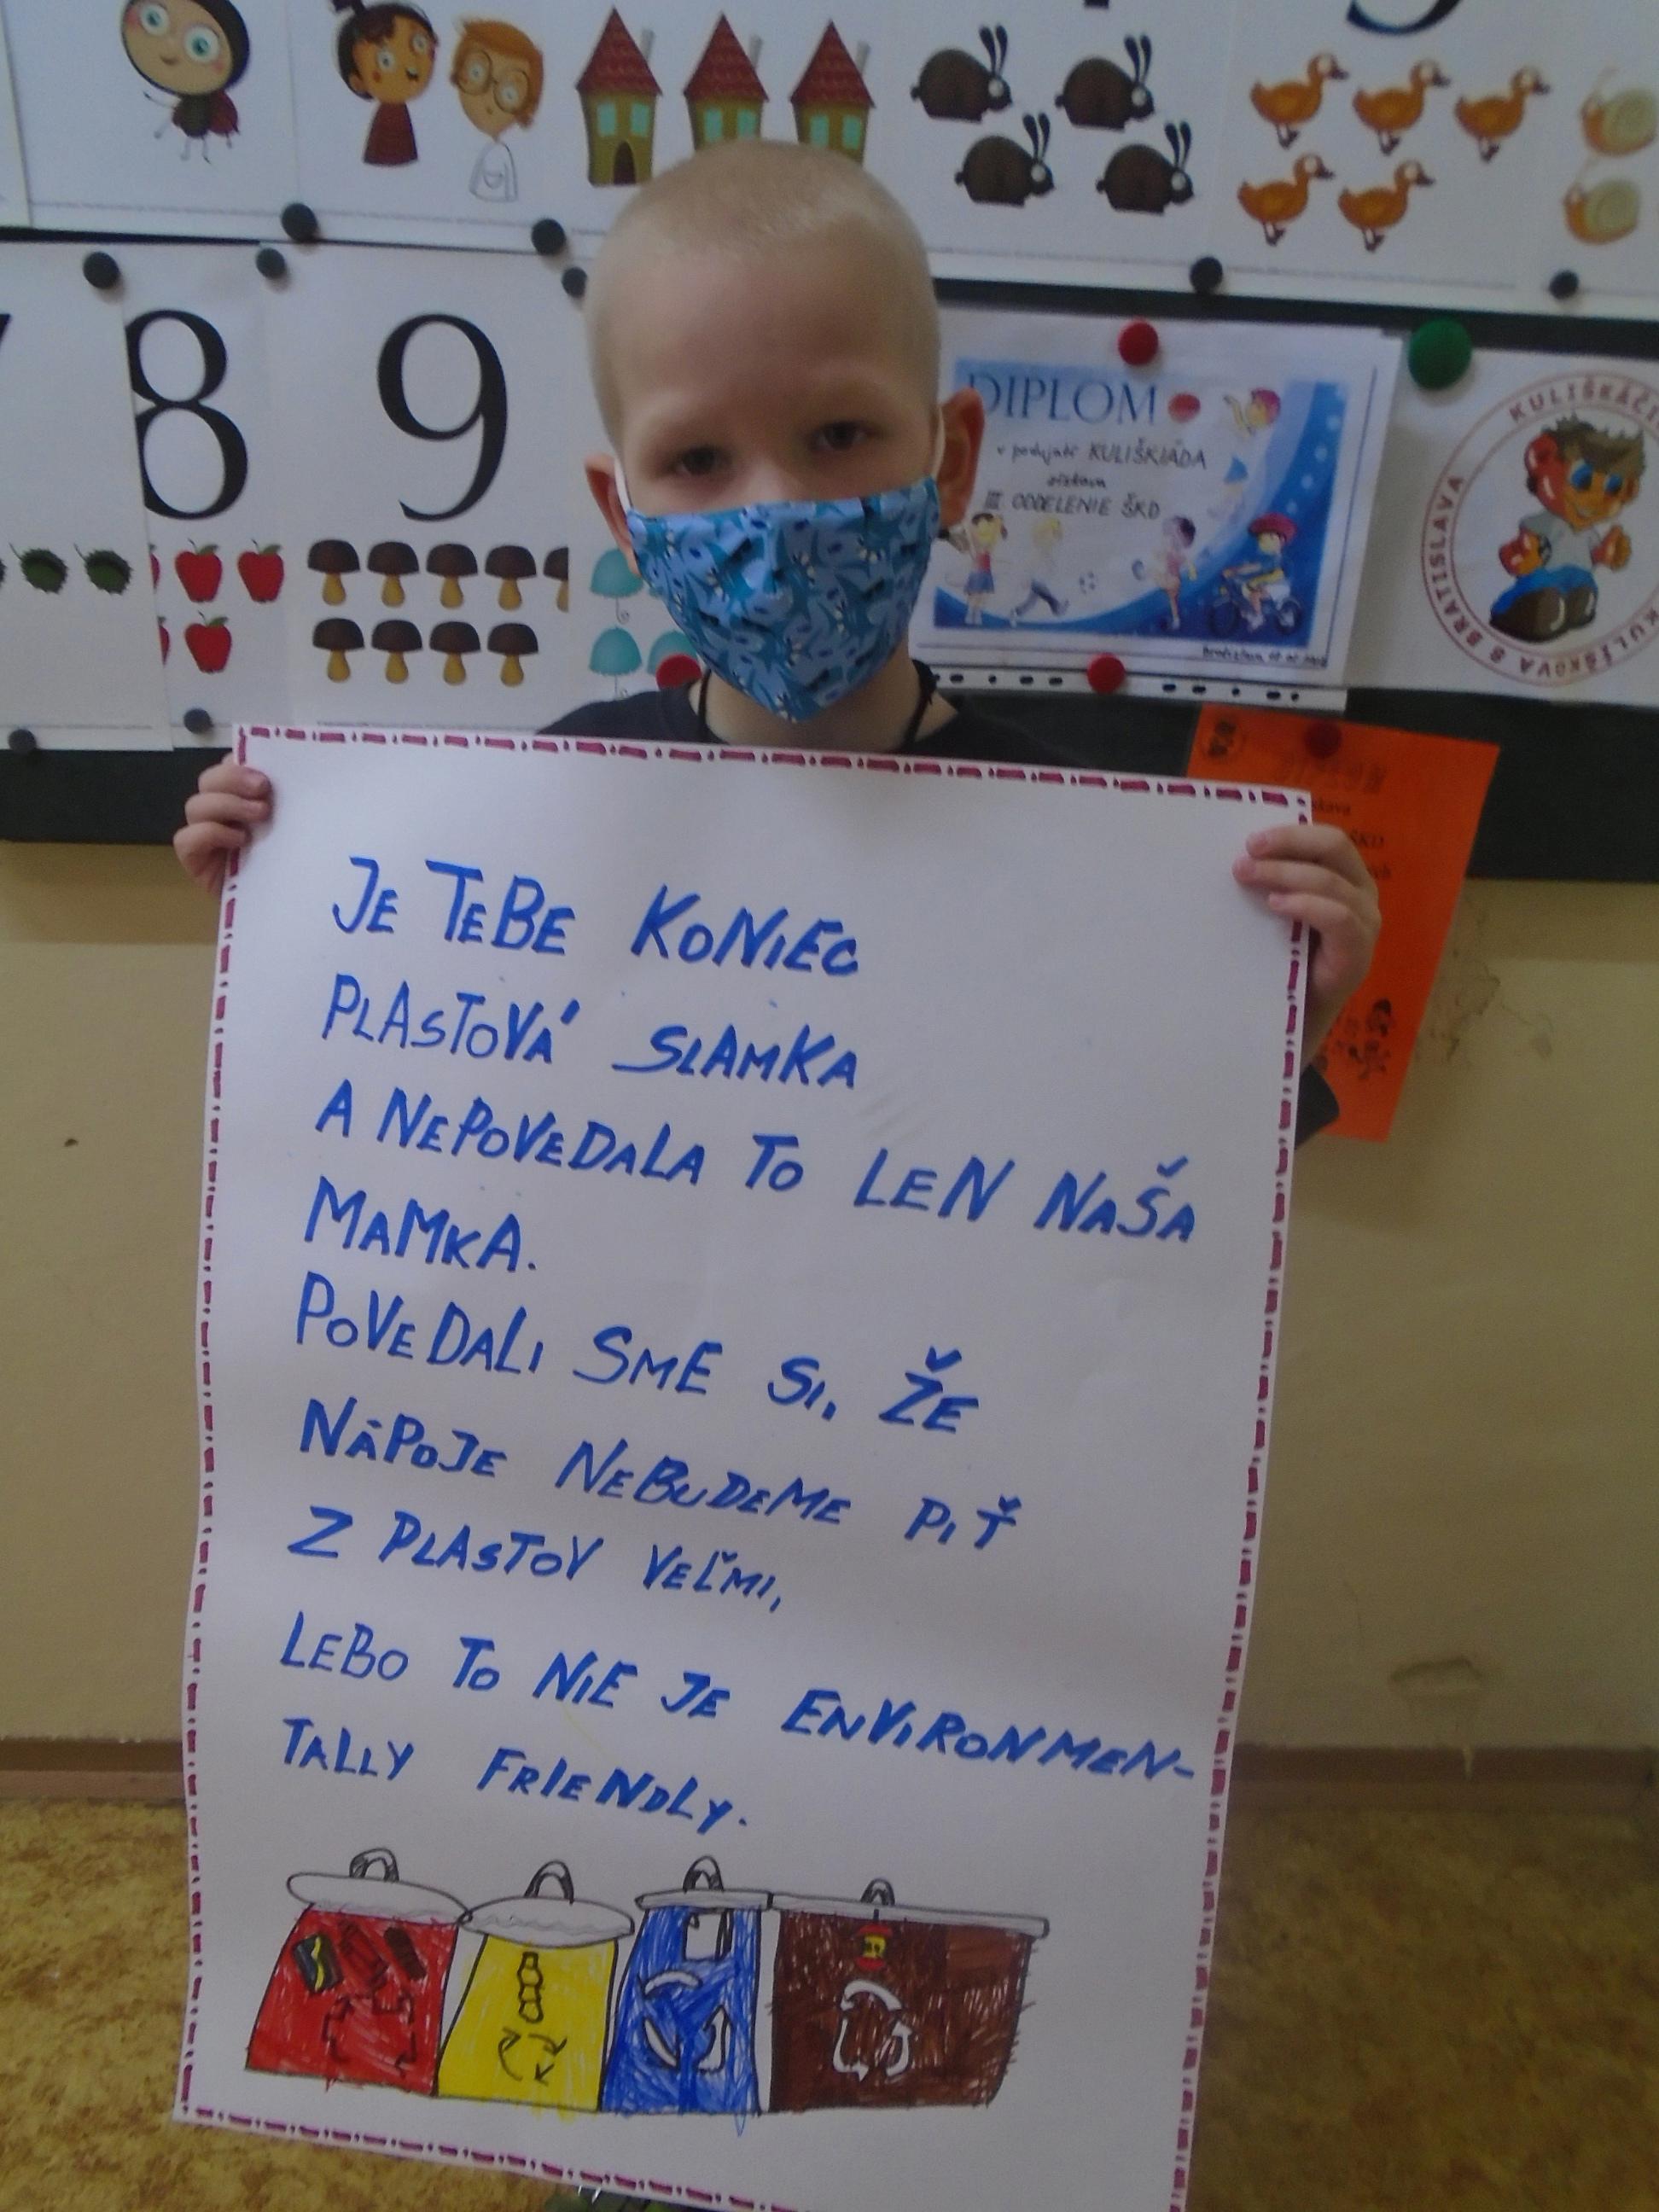 9
8
9
DIPLOM
v podujatí KULIŠKIÁDA
získava
III. ODDELENIE ŠKD
BRATISLAVA
KULÍŠKOVA 8
ŠKD
JE TEBE KONIEC
PLASTOVÁ SLAMKA
A NEPOVEDALA TO LEN NAŠA
MAMKA.
POVEDALI SME SI, ŽE
NÁPOJE NEBUDEME PIŤ
Z PLASTOV VEĽMI,
LEBO TO NIE JE ENVIRONMEN-
TALLY FRIENDLY.